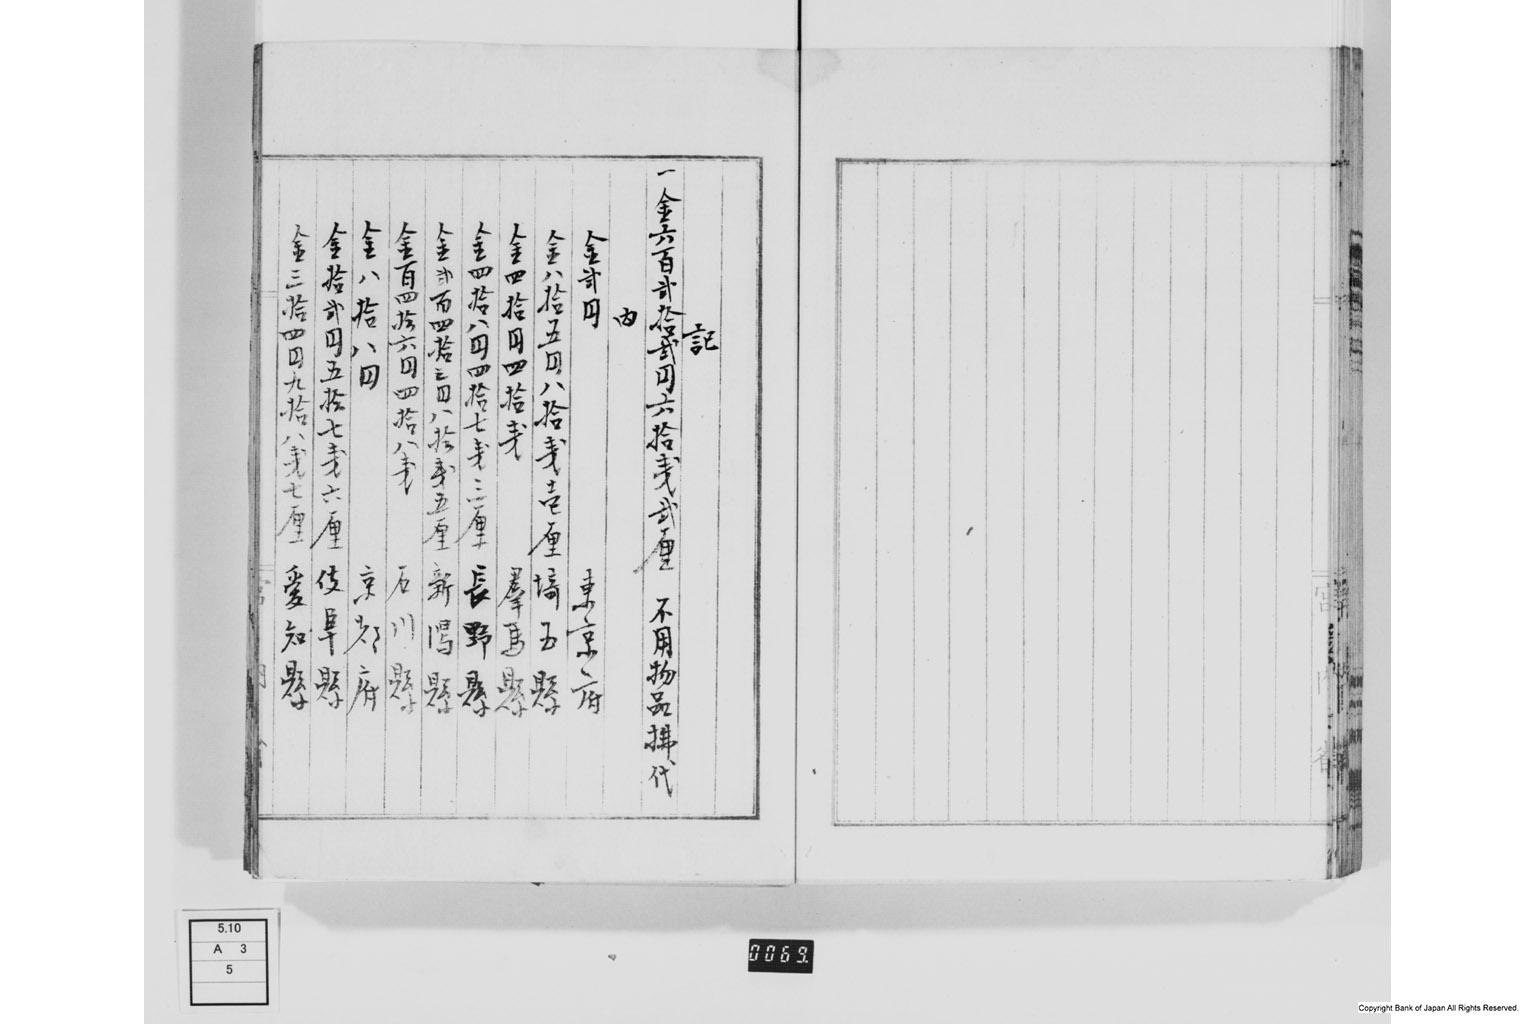 記
一金六百弐拾弐円六拾銭弐厘 不用物品拂代
内
金弐円 東京府
金八拾五円八拾銭壱厘 埼玉縣
金四拾円四拾銭 羣馬縣
金四拾八円四拾七銭三厘 長野縣
金弐百四拾三円八拾銭五厘 新潟縣
金百四拾六円四拾八銭 石川縣
金八拾八円 京都府
金拾弐円五拾七銭六厘 岐阜縣
金三拾四円九拾八銭七厘 愛知縣
宮内省
5.10
A 3
5
0069.
Copyright Bank of Japan All Rights Reserved.